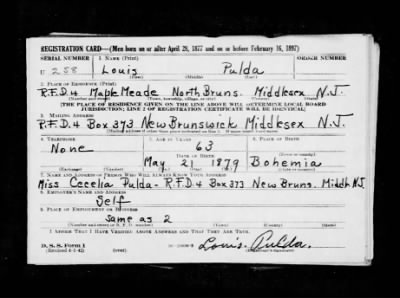 REGISTRATION CARD—(Men born on or after April 28, 1877 and on or before February 16, 1897)
SERIAL NUMBER 1. NAME (Print) ORDER NUMBER
U 258 Louis Pulda
(First) (Middle) (Last)
2. PLACE OF RESIDENCE (Print)
R.F.D.4 Maple Meade North Bruns. Middlesex N.J.
(Number and street) (Town, township, village, or city) (County) (State)
[THE PLACE OF RESIDENCE GIVEN ON THE LINE ABOVE WILL DETERMINE LOCAL BOARD
JURISDICTION; LINE 2 OF REGISTRATION CERTIFICATE WILL BE IDENTICAL]
3. MAILING ADDRESS
R.F.D.4 Box 373 New Brunswick Middlesex N.J.
[Mailing address if other than place indicated on line 2. If same insert word same]
4. TELEPHONE 5. AGE IN YEARS 6. PLACE OF BIRTH
None 63
DATE OF BIRTH
May 21 1879 Bohemia
(Exchange) (Number) (Mo.) (Day) (Yr.) (State or country)
7. NAME AND ADDRESS OF PERSON WHO WILL ALWAYS KNOW YOUR ADDRESS
Miss Cecelia Pulda - R.F.D 4 Box 373 New Bruns. Middlx N.J.
8. EMPLOYER'S NAME AND ADDRESS
Self
9. PLACE OF EMPLOYMENT OR BUSINESS
Same as 2
(Number and street or R. F. D. number) (Town) (County) (State)
I AFFIRM THAT I HAVE VERIFIED ABOVE ANSWERS AND THAT THEY ARE TRUE.
D. S. S. Form 1
(Revised 4-1-42) Louis Pulda.